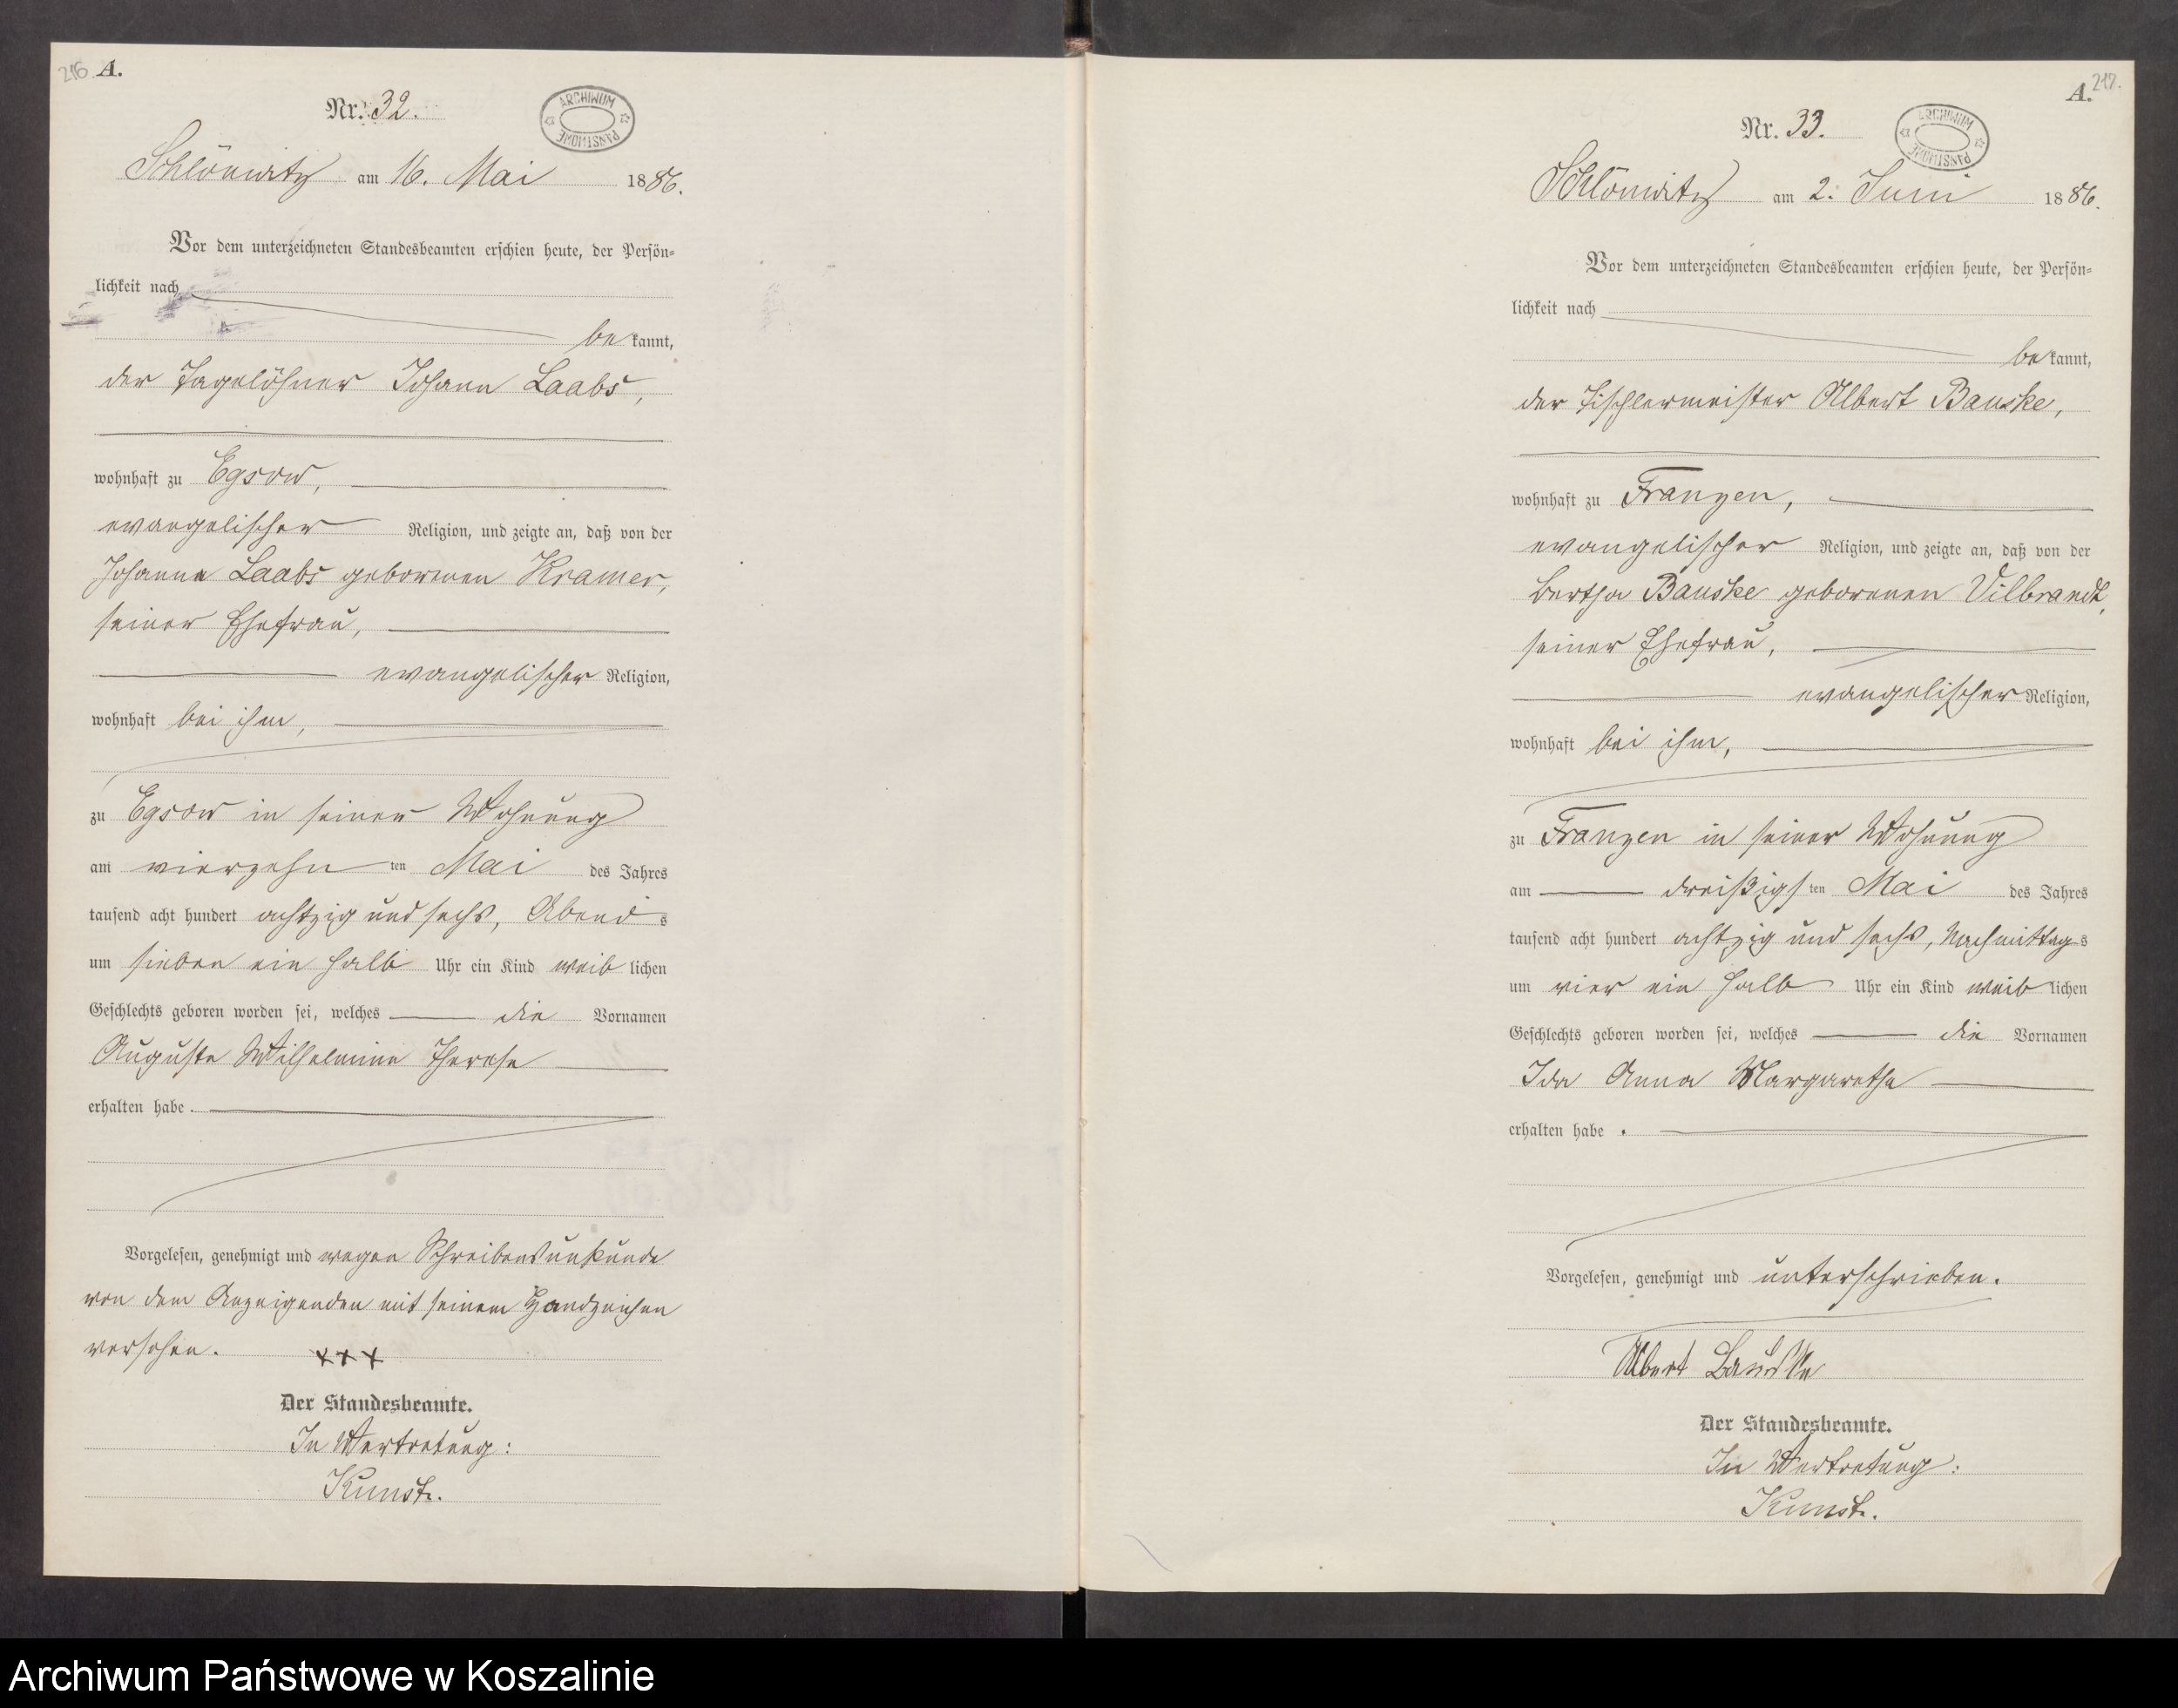 216 A.
Nr. 32.
ARCHIWUM PAŃSTWOWE
Schlönwitz am 16. Mai 1886.
Vor dem unterzeichneten Standesbeamten erschien heute, der Persön-
lichkeit nach
be kannt,
der Tagelöhner Johann Laabs,
wohnhaft zu Egsow,
evangelischer Religion, und zeigte an, daß von der
Johanne Laabs geborenen Kramer,
seiner Ehefrau,
evangelischer Religion,
wohnhaft bei ihm,
zu Egsow in seiner Wohnung
am vierzehn ten Mai des Jahres
tausend acht hundert achtzig und sechs, Abend s
um sieben ein halb Uhr ein Kind weib lichen
Geschlechts geboren worden sei, welches die Vornamen
Auguste Wilhelmine Therese
erhalten habe.
Vorgelesen, genehmigt und wegen Schreibensunkunde
von dem Anzeigenden mit seinem Handzeichen
versehen. +++
Der Standesbeamte.
In Vertretung:
Kunst.
A. 217.
Nr. 33.
ARCHIWUM PAŃSTWOWE
Schlönwitz am 2. Juni 1886.
Vor dem unterzeichneten Standesbeamten erschien heute, der Persön-
lichkeit nach
be kannt,
der Tischlermeister Albert Bauske,
wohnhaft zu Franzen,
evangelischer Religion, und zeigte an, daß von der
Bertha Bauske geborenen Vilbrandt,
seiner Ehefrau,
evangelischer Religion,
wohnhaft bei ihm,
zu Franzen in seiner Wohnung
am dreißigs ten Mai des Jahres
tausend acht hundert achtzig und sechs, Nachmittag s
um vier ein halb Uhr ein Kind weib lichen
Geschlechts geboren worden sei, welches die Vornamen
Ida Anna Margarethe
erhalten habe.
Vorgelesen, genehmigt und unterschrieben.
Albert Bauske
Der Standesbeamte.
In Vertretung:
Kunst.
Archiwum Państwowe w Koszalinie